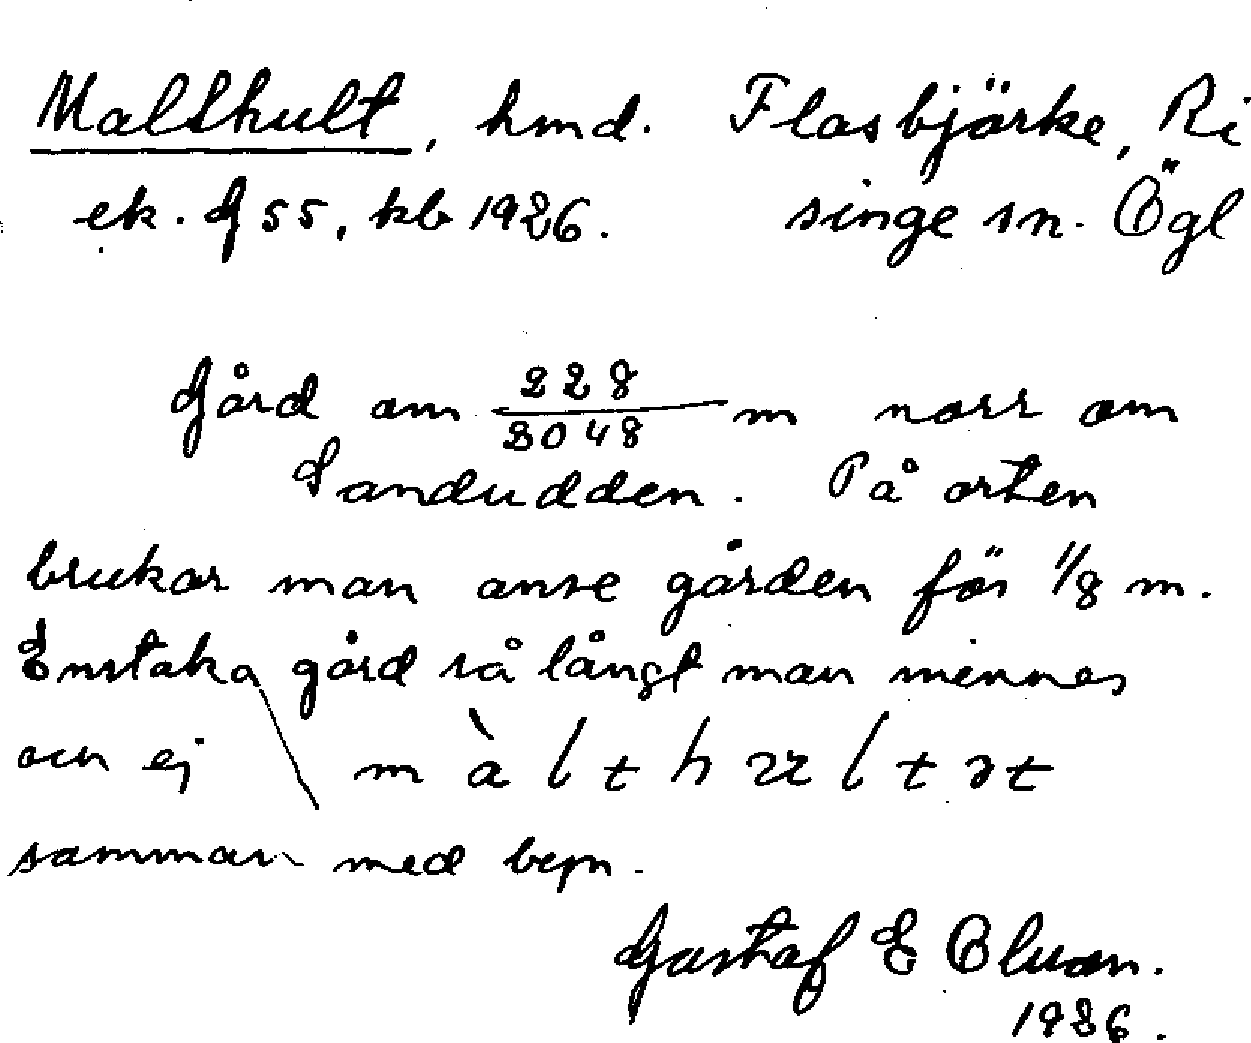 Malthult, hmd. Flasbjörke, Ri
ek. G 55, kb 1926. singe sn. Ögl
Gård om 228/3048 m norr om
Sandudden. På orten
brukar man anse gården för 1/8 m.
Enstaka gård så långt man minnes
och ej m à l t h u l t
samman med bepn.
Gustaf E
1936.